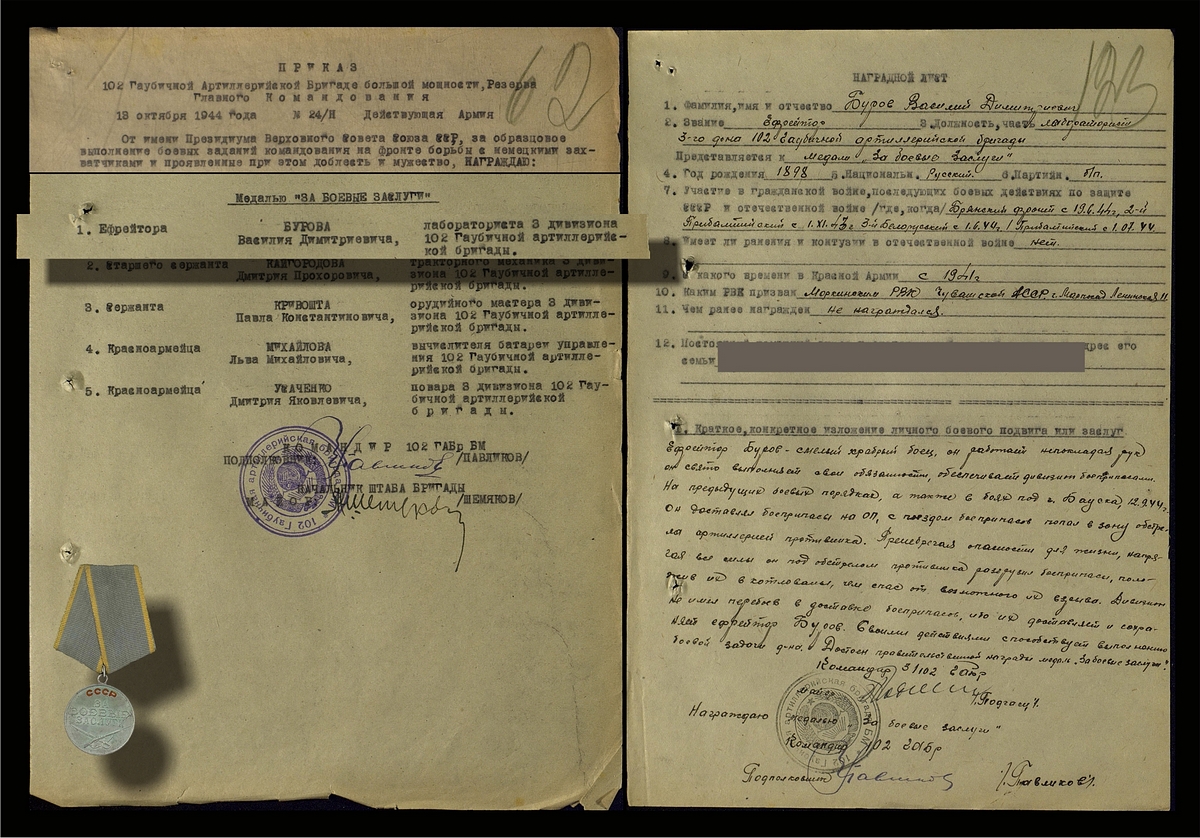 62
ПРИКАЗ
102 Гаубичной Артиллерийской Бригаде большой мощности, Резерва
Главного Командования
13 октября 1944 года № 24/Н Действующая Армия
От имени Президиума Верховного Совета Союза ССР, за образцовое
выполнение боевых заданий командования на фронте борьбы с немецкими зах-
ватчиками и проявленные при этом доблесть и мужество, НАГРАЖДАЮ:
Медалью "ЗА БОЕВЫЕ ЗАСЛУГИ"
1. Ефрейтора БУРОВА лабораториста 3 дивизиона
Василия Димитриевича, 102 Гаубичной артиллерийс-
кой бригады.
2. Старшего сержанта КАЙГОРОДОВА тракторного механика 3 диви-
Дмитрия Прохоровича, зиона 102 Гаубичной артилле-
рийской бригады.
3. Сержанта КРИВОШТА орудийного мастера 3 диви-
Павла Константиновича, зиона 102 Гаубичной артилле-
рийской бригады.
4. Красноармейца МИХАЙЛОВА вычислителя батареи управле-
Льва Михайловича, ния 102 Гаубичной артилле-
рийской бригады.
5. Красноармейца УСАЧЕНКО повара 3 дивизиона 102 Гау-
Дмитрия Яковлевича, бичной артиллерийской
бригады.
КОМАНДИР 102 ГАБр БМ
ПОДПОЛКОВНИК /ПАВЛИКОВ/
НАЧАЛЬНИК ШТАБА БРИГАДЫ
/ШЕМЯКОВ/
СССР
ЗА
БОЕВЫЕ
ЗАСЛУГИ
НАГРАДНОЙ ЛИСТ
1. Фамилия, имя и отчество Буров Василий Димитриевич
2. Звание Ефрейтор 3. Должность, часть лабораторист
3-го дна 102 Гаубичной артиллерийской бригады
Представляется к медали "За боевые заслуги"
4. Год рождения 1898 5. Национальн. Русский. 6. Партийн. б/п.
7. Участие в гражданской войне, последующих боевых действиях по защите
СССР и отечественной войне /где, когда/ Брянский фронт с 19.6.44г, 2-й
Прибалтийский с 1.XI.43г 3й Белорусский с 1.6.44г, 1 Прибалтийский с 1.07.44.
8. Имеет ли ранения и контузии в отечественной войне нет.
9. С какого времени в Красной Армии с 1941г
10. Каким РВК призван РВК Чувашской АССР г. Марпосад Ленинская 11
11. Чем ранее награжден не награждался.
12. адрес его
семьи
I. Краткое, конкретное изложение личного боевого подвига или заслуг
Ефрейтор Буров - смелый храбрый боец, он работает непокладая рук
он свято выполняет свои обязанности, обеспечивает дивизион боеприпасами.
На предыдущих боевых порядках, а также в боях под г. Бауска, 12.9.44г.
Он доставлял боеприпасы на ОП, с поездом боеприпасов попал в зону обстре-
ла артиллерией противника. Пренебрегая опасностью для жизни, напря-
гая все силы он под обстрелом противника разгрузил боеприпасы, поло-
жив их в котлованы, чем спас от возможного их взрыва. Дивизион
не имел перебоев в доставке боеприпасов, ибо их доставляет и сохра-
няет ефрейтор Буров. Своими действиями способствует выполнению
боевой задачи д-на. Достоин правительственной награды медаль "За боевые заслуги".
Командир 3/102 ГАБр
майор /Подгаец/.
Награждаю медалью "За боевые заслуги"
Командир 102 ГАБр
Подполковник /Павликов/.